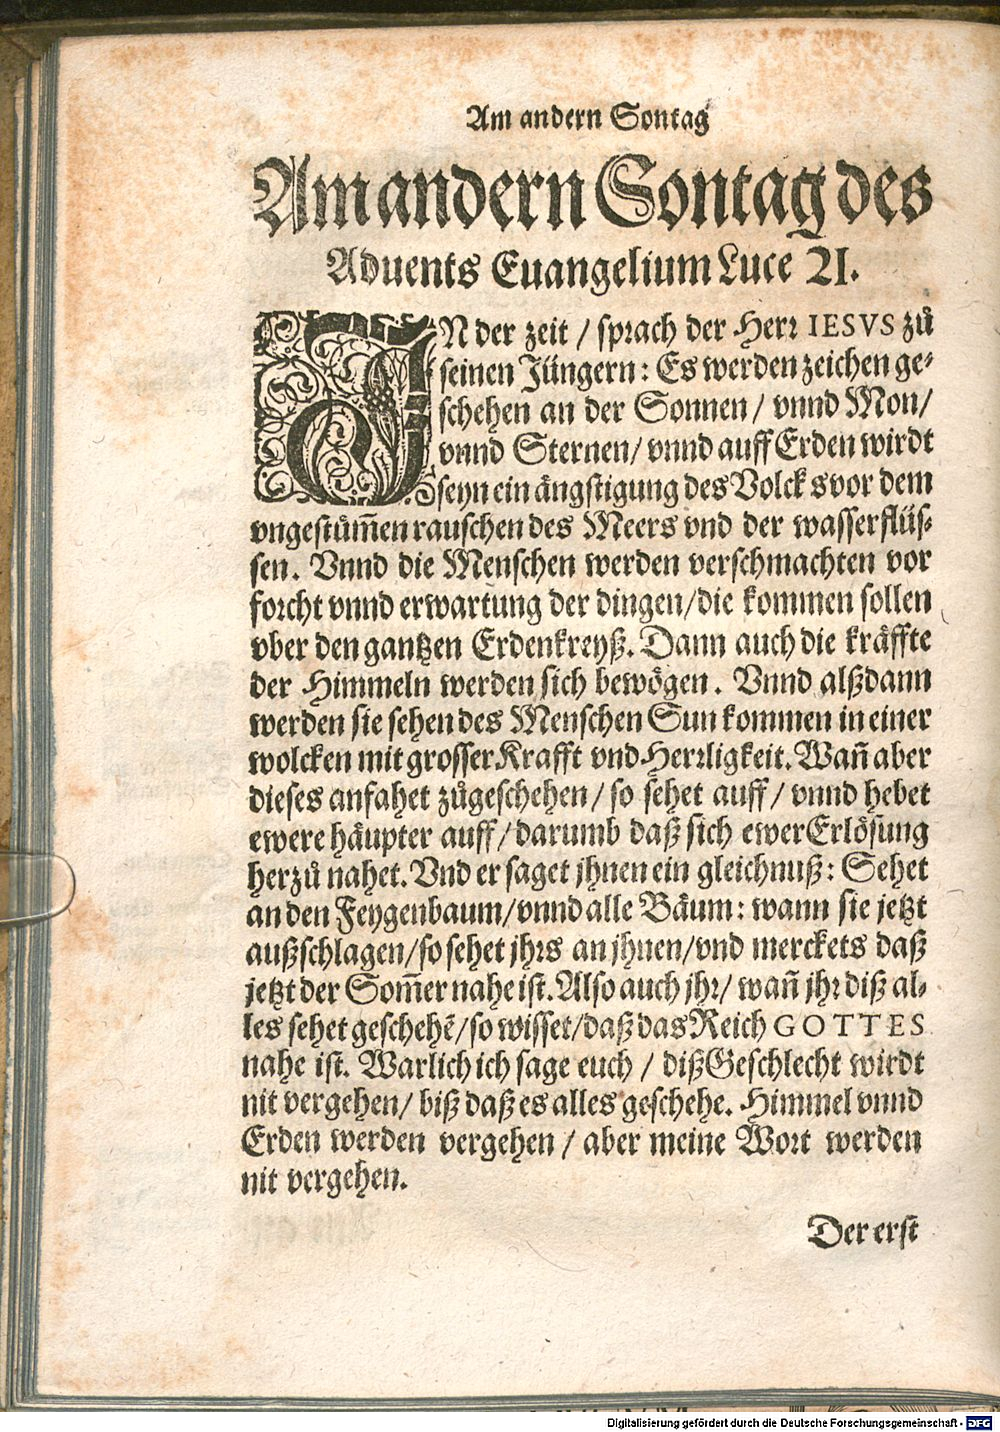 Am andern Sontag
Am andern Sontag des
Aduents Euangelium Luce 21.
IN der zeit / sprach der Herr IESVS zů
seinen Jüngern: Es werden zeichen ge-
schehen an der Sonnen / vnnd Mon /
vnnd Sternen / vnnd auff Erden wirdt
seyn ein ängstigung des Volcks vor dem
vngestüm̃en rauschen des Meers vnd der wasserflüs-
sen. Vnnd die Menschen werden verschmachten vor
forcht vnnd erwartung der dingen / die kommen sollen
vber den gantzen Erdenkreyß. Dann auch die kräffte
der Himmeln werden sich bewögen. Vnnd alßdann
werden sie sehen des Menschen Sun kommen in einer
wolcken mit grosser Krafft vnd Herrligkeit. Wañ aber
dieses anfahet zůgeschehen / so sehet auff / vnnd hebet
ewere häupter auff / darumb daß sich ewer Erlösung
herzů nahet. Vnd er saget jhnen ein gleichnuß: Sehet
an den Feygenbaum / vnnd alle Bäum: wann sie jetzt
außschlagen / so sehet jhrs an jhnen / vnd merckets daß
jetzt der Som̃er nahe ist. Also auch jhr / wañ jhr diß al-
les sehet geschehẽ / so wisset / daß das Reich GOTTES
nahe ist. Warlich ich sage euch / diß Geschlecht wirdt
nit vergehen / biß daß es alles geschehe. Himmel vnnd
Erden werden vergehen / aber meine Wort werden
nit vergehen.
Der erst
Digitalisierung gefördert durch die Deutsche Forschungsgemeinschaft - DFG